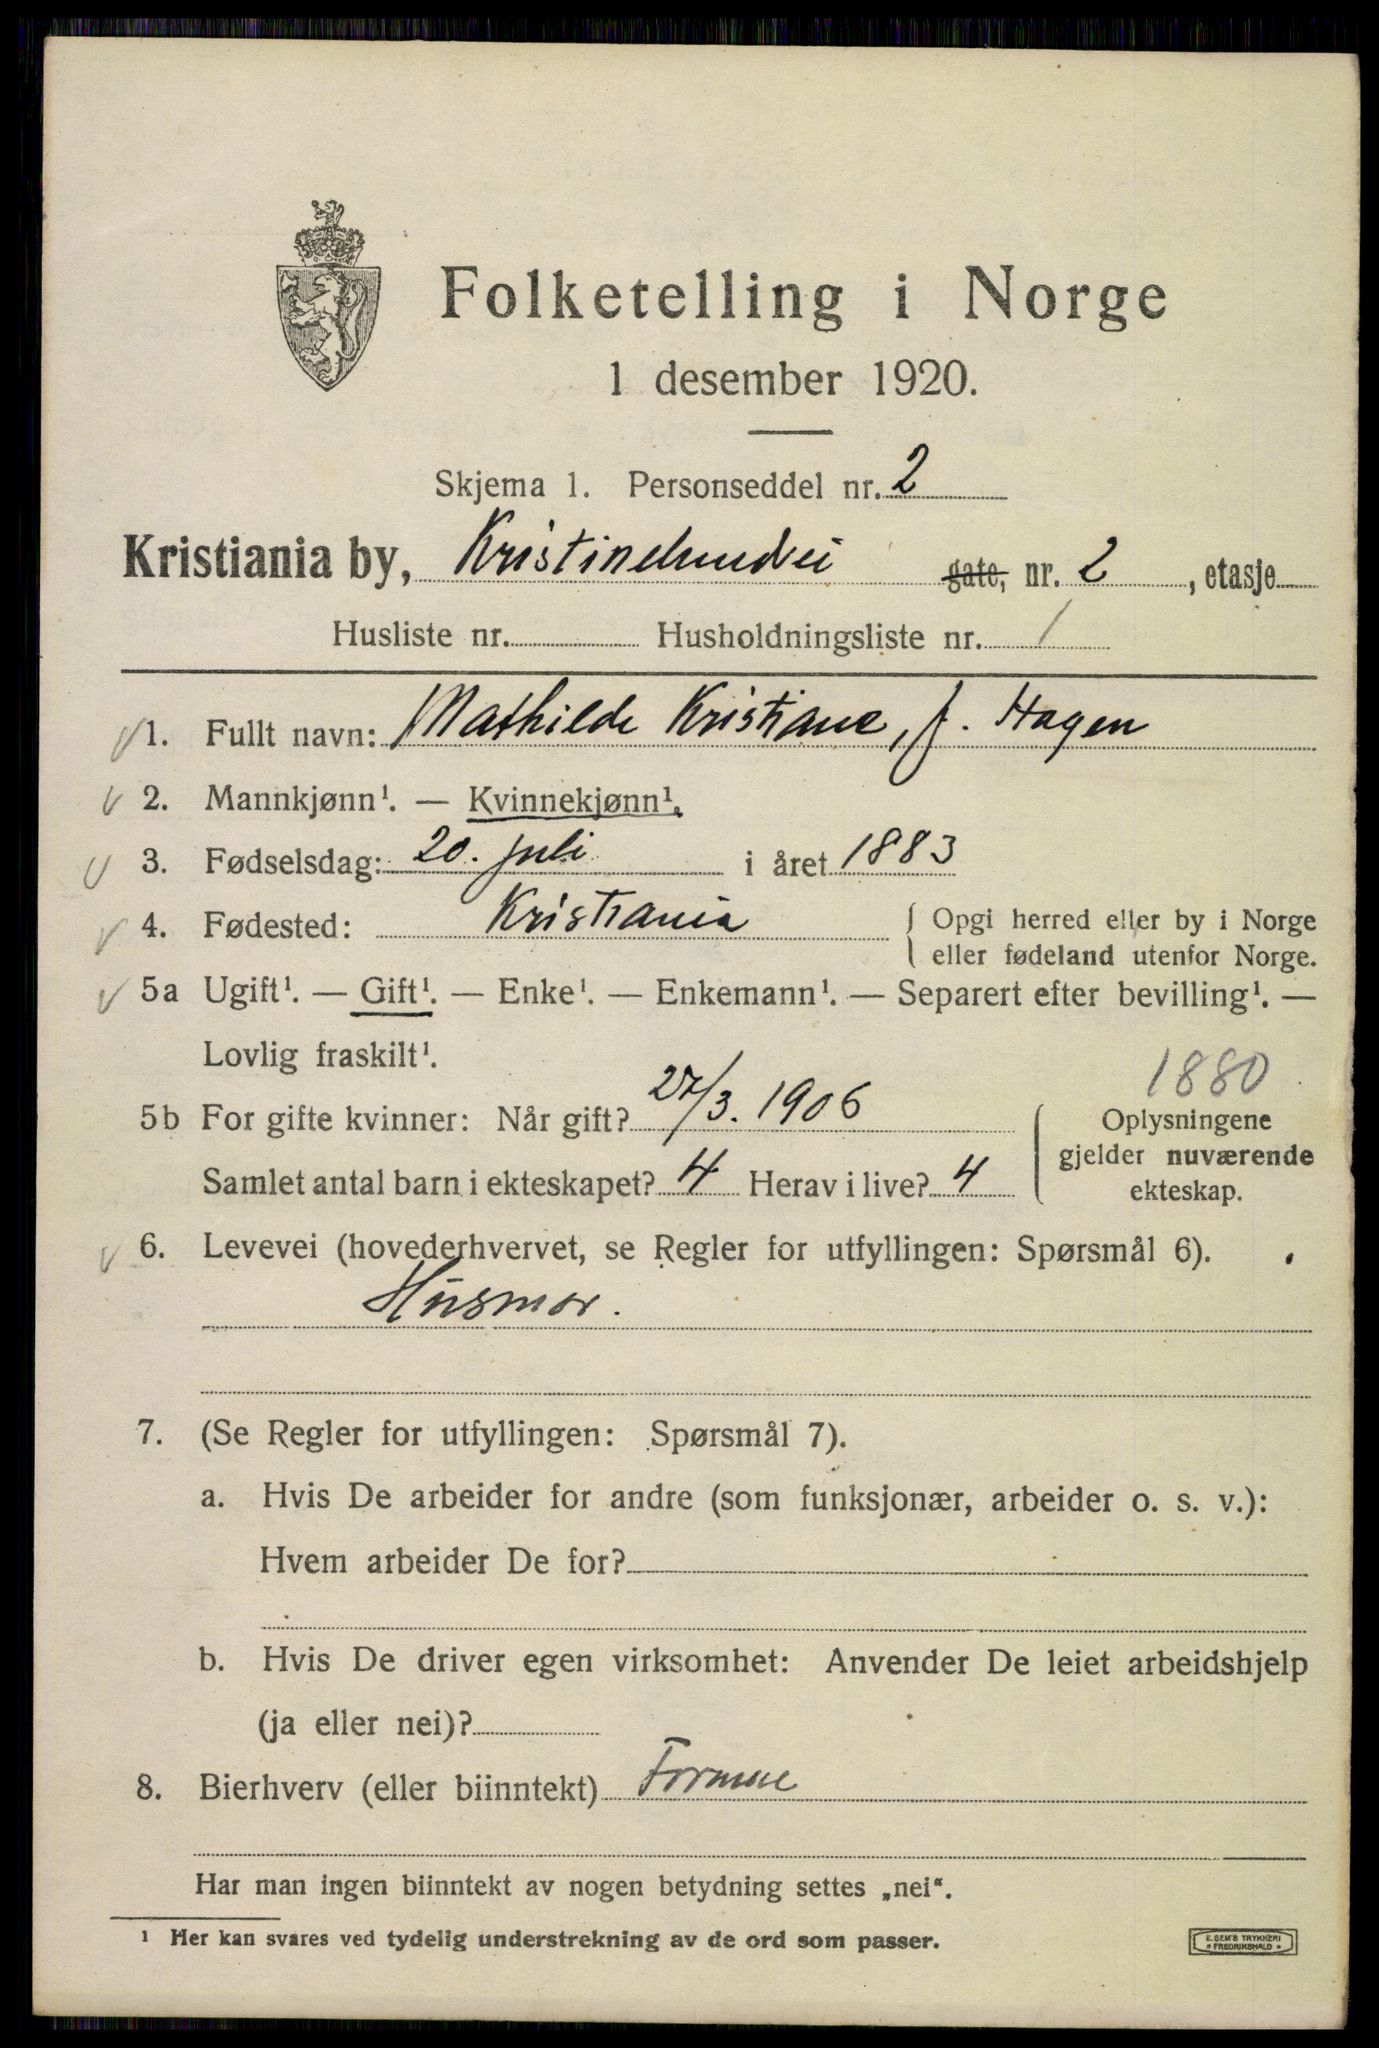 Folketelling i Norge
1 desember 1920.
Skjema 1. Personseddel nr. 2
Kristiania by, Kristinelundvei gate, nr. 2, etasje
Husliste nr. Husholdningsliste nr. 1
1. Fullt navn: Mathilde Kristiane, f. Hagen
2. Mannkjønn¹. — Kvinnekjønn¹.
3. Fødselsdag: 20. juli i året 1883
4. Fødested: Kristiania { Opgi herred eller by i Norge
eller fødeland utenfor Norge.
5a Ugift¹. — Gift¹. — Enke¹. — Enkemann¹. — Separert efter bevilling¹. —
Lovlig fraskilt¹.
1880
5b For gifte kvinner: Når gift? 27/3. 1906 { Oplysningene
gjelder nuværende
Samlet antal barn i ekteskapet? 4 Herav i live? 4 ekteskap.
6. Levevei (hovederhvervet, se Regler for utfyllingen: Spørsmål 6).
Husmor.
7. (Se Regler for utfyllingen: Spørsmål 7).
a. Hvis De arbeider for andre (som funksjonær, arbeider o. s. v.):
Hvem arbeider De for?
b. Hvis De driver egen virksomhet: Anvender De leiet arbeidshjelp
(ja eller nei)?
8. Bierhverv (eller biinntekt) Formue
Har man ingen biinntekt av nogen betydning settes „nei“.
¹ Her kan svares ved tydelig understrekning av de ord som passer.
E. SEM'S TRYKKERI
• FREDRIKSHALD •